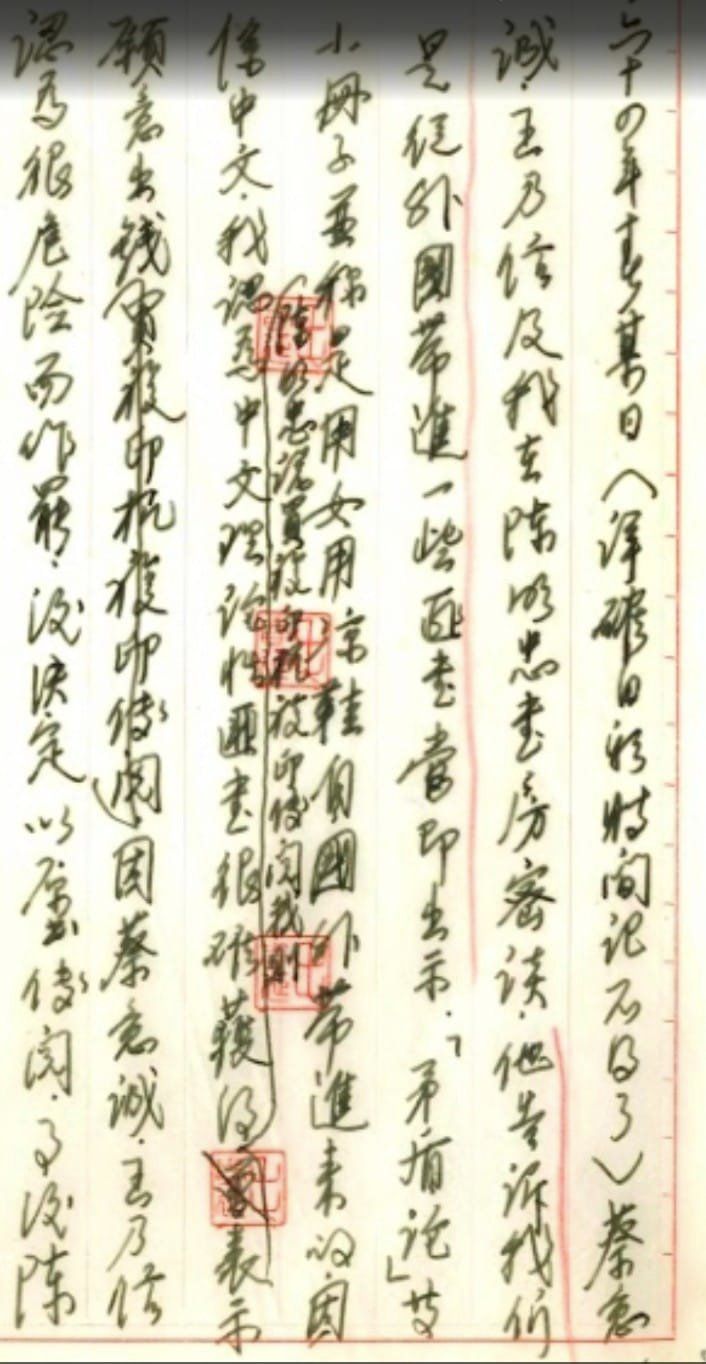 六十四年春某日(詳確日期時間記不得了)蔡意
誠.王乃信及我在陳明忠書房密談.他告訴我們
是從外國帶進一些匪書當即出示.「矛盾論」等
小冊子並稱是用女用涼鞋自國外帶進來的.因
(陳明忠認買複印機複印傳閱.我則
係中文.我認為中文理論性匪書很難獲得表示
願意出錢買複印機複印傳閱)因蔡意誠.王乃信
認為很危險而作罷.後決定以原書傳閱.事後陳